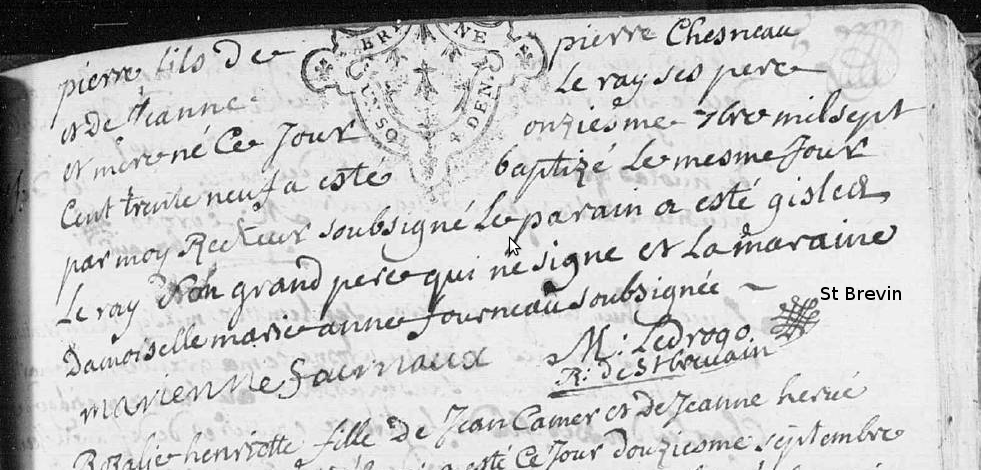 pierre fils de pierre Chesneau
et de Jeanne Le ray ses pere
et mere né Ce Jour onziesme 7bre mil sept
Cent trente neuf a esté baptizé le mesme Jour
par moy Recteur soubsigné Le parain a esté
Le ray son grand pere qui ne signe et La maraine
Damoiselle marie anne fourneau soubsignée
marienne fournaux
M: Ledrogo
R: de St brevain
St Brevin
Rozalie henriette fille de Jean Camer et de Jeanne
esté Ce Jour douziesme septembre